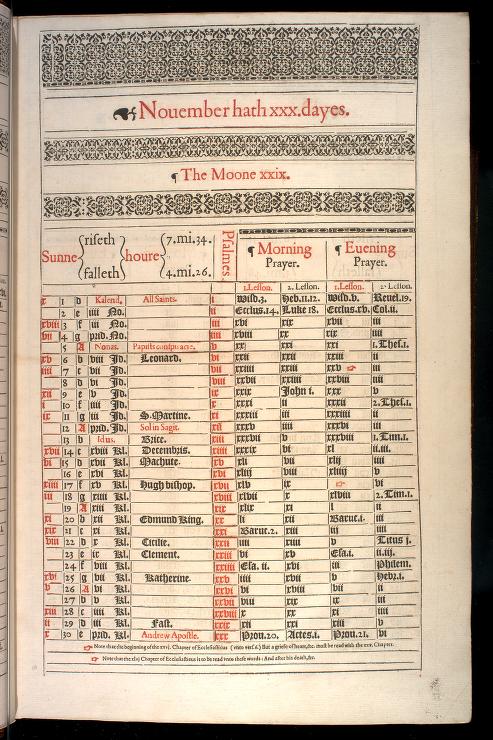 Nouember hath xxx.dayes.
¶ The Moone xxix.
Sunne { riseth falleth } houre { 7.mi.34. 4.mi.26. Psalmes ¶ Morning Prayer. ¶ Euening Prayer.
1.Lesson. 2. Lesson. 1.Lesson. 2. Lesson.
1 d Kalend. All Saints. i Wisd.3. Heb.11.12. Wisd.v. Reuel.19.
2 e iiii No. ii Ecclus.14. Luke 18. Ecclus.xv. Col.ii.
xviii 3 f iii No. iii xvi xix xvii iii
vii 4 g prid. No. iiii xviii xx xix iiii
5 A Nonas. Papists conspiracie. v xx xxi xxi 1.Thes.i.
xv 6 b viii Jd. Leonard. vi xxii xxii xxiii ii
iiii 7 c vii Jd. vii xxiiii xxiii xxv iii
8 d vi Jd. viii xxvii xxiiii xxviii iiii
xii 9 e v Jd. ix xxix John i. xxx v
i 10 f iiii Jd. x xxxi ii xxxii 2.Thes.i.
ix 11 g iii Jd. S.Martine. xi xxxiii iii xxxiiii ii
12 A prid. Jd. Sol in Sagit. xii xxxv iiii xxxvi iii
13 b Idus. Brice. xiii xxxvii v xxxviii 1.Tim.i.
xvii 14 c xviii Kl. Decembris. xiiii xxxix vi xl ii.iii.
vi 15 d xvii Kl. Machute. xv xli vii xlii iiii
16 e xvi Kl. xvi xliii viii xliiii v
xiiii 17 f xv Kl. Hugh bishop. xvii xlv ix vi
iii 18 g xiiii Kl. xviii xlvii x xlviii 2.Tim.i.
19 A xiii Kl. xix xlix xi l ii
xi 20 b xii Kl. Edmund King. xx li xii Baruc.i. iii
xix 21 c xi Kl. xxi Baruc.2. xiii iii iiii
viii 22 d x Kl. Cicilie. xxii iiii xiiii v Titus j.
23 e ix Kl. Clement. xxiii vi xv Esa.i. ii.iii.
24 f viii Kl. xxiiii Esa. ii. xvi iii Philem.
xvi 25 g vii Kl. Katherine. xxv iiii xvii v Hebr.i.
v 26 A vi Kl. xxvi vi xviii vii ii
27 b v Kl. xxvii viii xix ix iii
xiii 28 c iiii Kl. xxviii x xx xi iiii
ii 29 d iii Kl. Fast. xxix xii xxi xiii v
x 30 e prid. Kl. Andrew Apostle. xxx Prou.20. Actes.i. Prou.21. vi
Note that the beginning of the xxvj. Chapter of Ecclesiasticus (vnto vers.6.) But a griefe of heart,&c. must be read with the xxv. Chapter.
Note that the xlvj Chapter of Ecclesiasticus is to be read vnto these words: And after his death,&c.